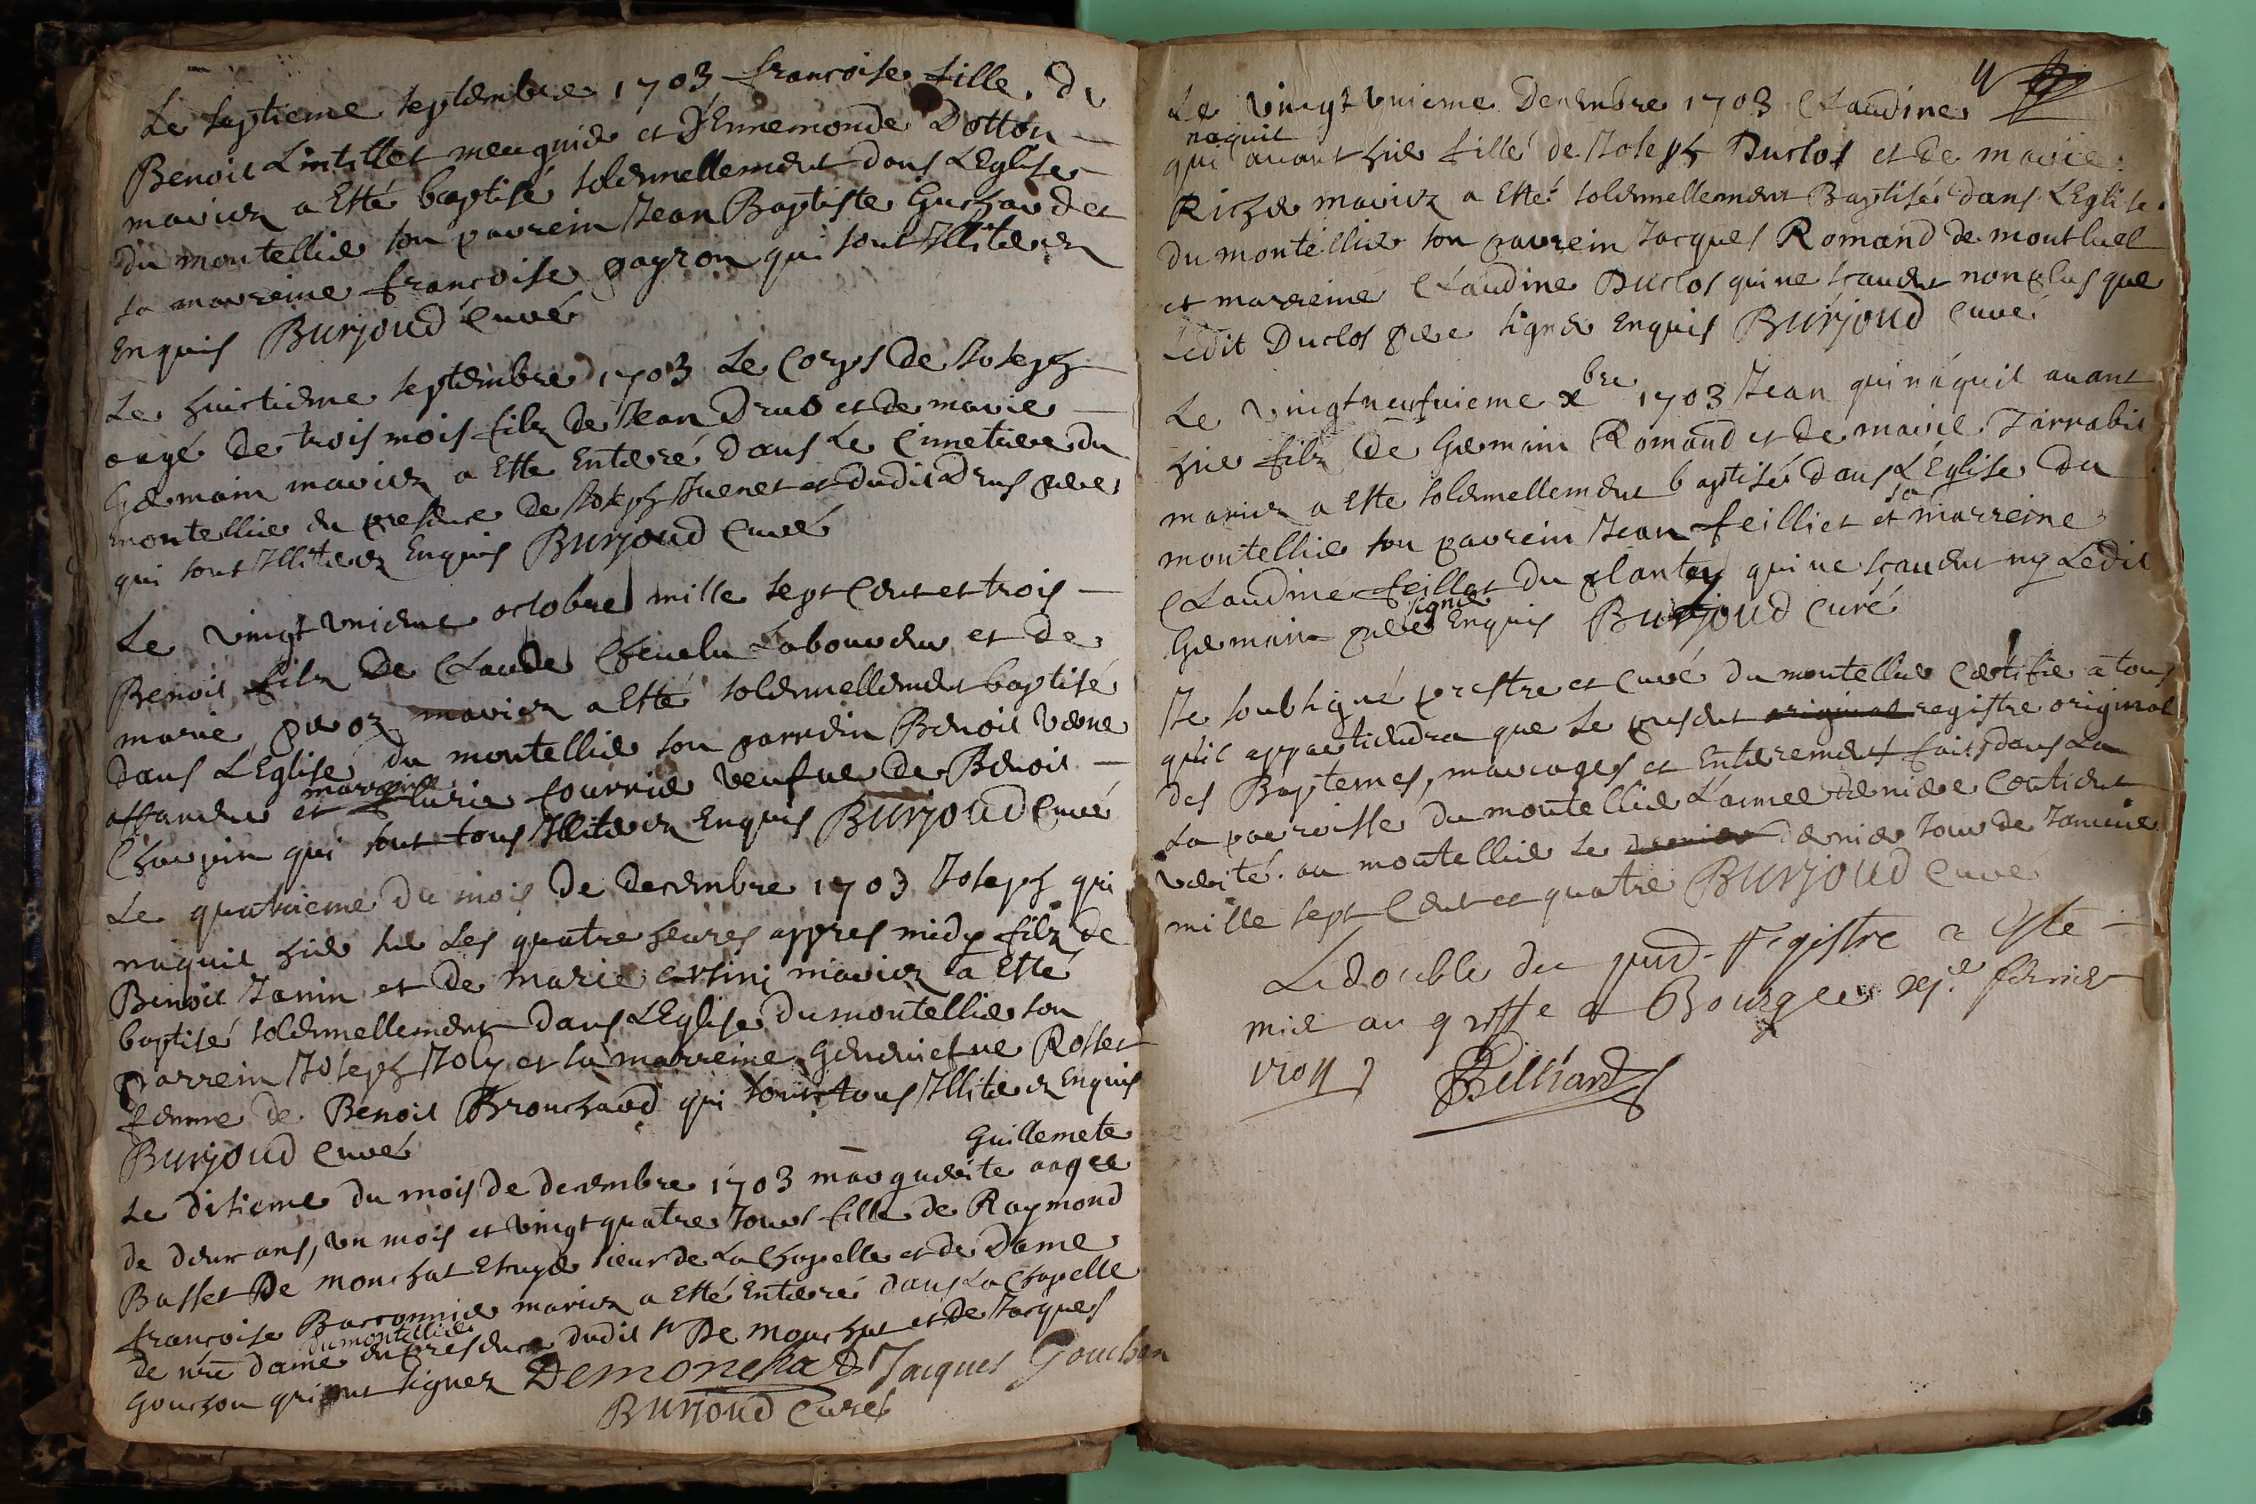 Le septieme septembre 1703 francoise fille de
Benoit Lintillet meugnier et D'Ennemonde Dotton
mariez a esté baptisé solemnellement dans L'Eglise
du montellier son parrein Jean Baptiste Guchardet
sa marreine francoise payron qui sont Illiterez
Enquis Burjoud Curé
Le huictieme septembre 1703 Le Corps de Joseph
aagé de trois mois filz de Jean Drus et de marie
Germain mariez a esté Enterré dans Le Cimetiere du
montellier en presence de Joseph Juenet et dudit Drus pere
qui sont Illiterez Enquis Burjoud Curé
Le vingt unieme octobre mille sept Cent et trois
Benoit filz De Claude Chevelu Laboureur et de
marie peroz mariez a esté solemnellement baptisé
dans L'Eglise du montellier son parrein Benoit
affaneur et marreine Clurie fourrier veufve de Benoit
Charpin qui sont tous Illiterez Enquis Burjoud Curé
Le quatrieme du mois de decembre 1703 Joseph qui
naquit hier sur Les quatre heures appres midy filz de
Benoit Janin et de marie mariez a esté
baptisé solemnellement dans L'Eglise du montellier son
parrein Joseph Joly et sa marreine Geneviefve Rosset
femme de Benoit Brouchard qui sont tous Illiterez Enquis
Burjoud Curé
Guillemete
Le disieme du mois de decembre 1703 marguerite aagee
de deux ans, un mois et vingt quatre Jours fille de Raymond
Basset De monchat Escuyer sieur de La Chapelle et de Dame
francoise Barronnier mariez a esté Enterré dans La Chapelle
de nre dame du montellier en presence dudit sr De monchat et de Jacques
Gouchon qui ont signez Demonchat Jacques Gouchon
Burjoud Curé
Le vingt unieme Decembre 1703 Claudine
qui naquit avant hier fille de Joseph Duclos et de marie
Richer mariez a esté solemnellement Baptisé dans L'Eglise
du montellier son parrein Jacques Romand de montluel
et marreine Claudine Duclos qui ne scavent non plus que
Ledit Duclos pere signer Enquis Burjoud Curé
Le vingt neufuieme xbre 1703 Jean qui naquit avant
hier filz de Germain Romand et de marie Tarrabit
mariez a esté solemnellement baptisé dans L'Eglise du
montellier son parrein Jean feilliet et sa marreine
Claudine feillet du plantey qui ne scavent ny Ledit
Germain pere signer Enquis Burjoud Curé
Je soubsigné prestre et Curé du montellier Certifie a tous
qu'il appartiendra que Le present original registre original
des Baptemes, mariages et Enterrements faits dans La
La parroisse du montellier L'année derniere Contient
verité. au montellier Le dernier dernier Jour de Janvier
mille sept Cent et quatre Burjoud Curé
Le double du pnt. Registre a esté
mis au greffe a Bourg le fevrier
1704
Billiard